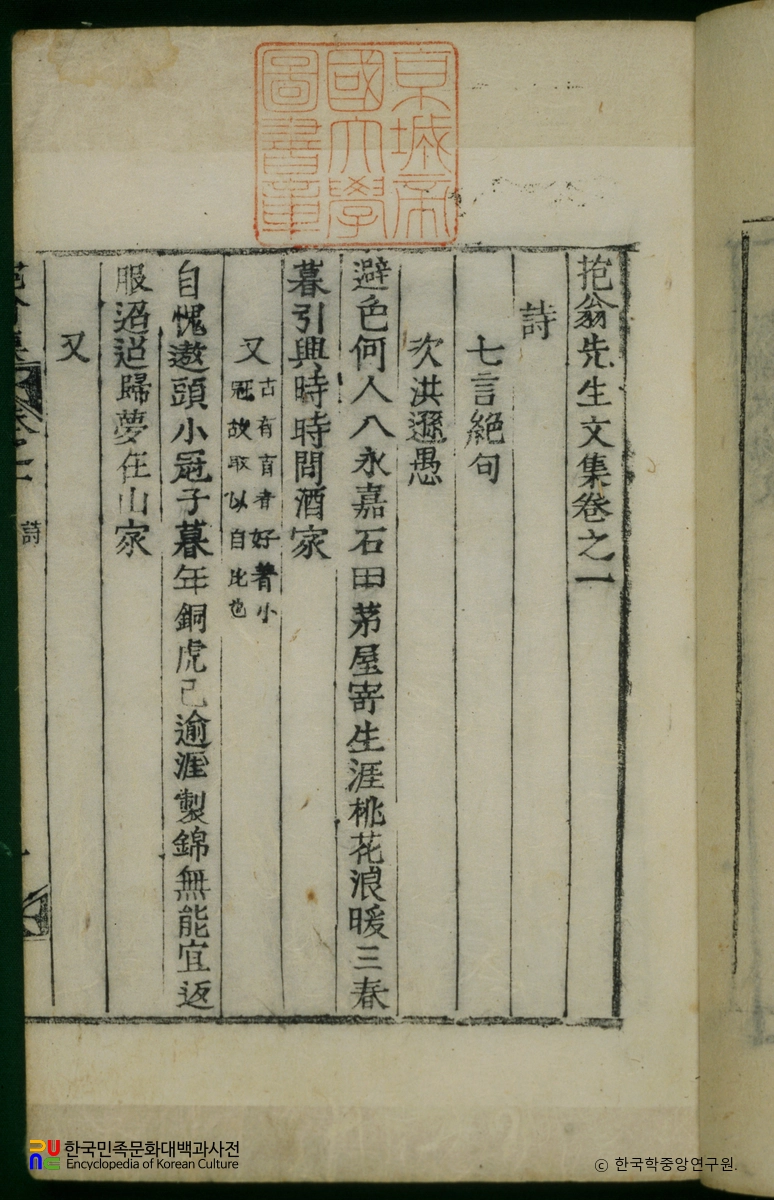 京城帝
國大學
圖書章
抱翁先生文集卷之一
詩
七言絶句
次洪遜愚
避色何人入永嘉石田茅屋寄生涯桃花浪暖三春
暮引興時時問酒家
又 古有盲者好着小
冠故取以自比也
自愧遨頭小冠子暮年銅虎已逾涯製錦無能宜返
服迢迢歸夢在山家
又
卷之一 詩
한국민족문화대백과사전
Encyclopedia of Korean Culture
© 한국학중앙연구원.